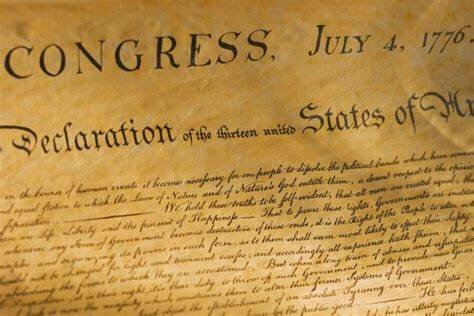 CONGRESS, JULY 4, 1776.
Declaration of the thirteen united States of
in the Course of human events it becomes necessary for one people to dissolve the political bands which have
equal station to which the Laws of Nature and of Nature's God entitle them, a decent respect to the
separation. — We hold these truths to be self-evident, that all men are created equal,
are Life, Liberty and the pursuit of Happiness — That to secure these rights, Governments are
any Form of Government becomes destructive of these ends, it is the Right of the People to alter
its powers in such form, as to them shall seem most likely to effect their
not be changed for light and transient causes; and accordingly all experience hath shewn, that
to which they are accustomed. But when a long train of abuses and
it is their right, it is their duty, to throw off such Government, and to provide new
constrains them to alter their former Systems of Government.
establishment of an absolute Tyranny over these States
for the public good.